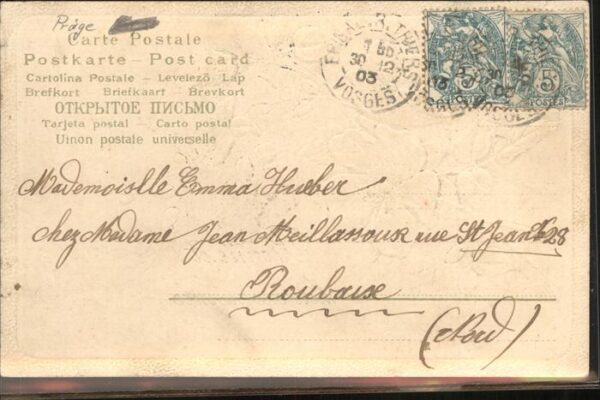 Präge
Carte Postale
Postkarte – Post card
Cartolina Postale – Levelező Lap
Brefkort – Briefkaart – Brevkort
ОТКРЫТОЕ ПИСЬМО
Tarjeta postal – Carto postal
Uinon postale universelle
30 12 03
VOSGES
5c
POSTES
Mademoislle Emma Hueber
chez Madame Jean Meillassoux rue St Jean 28
Roubaix
(Nord)